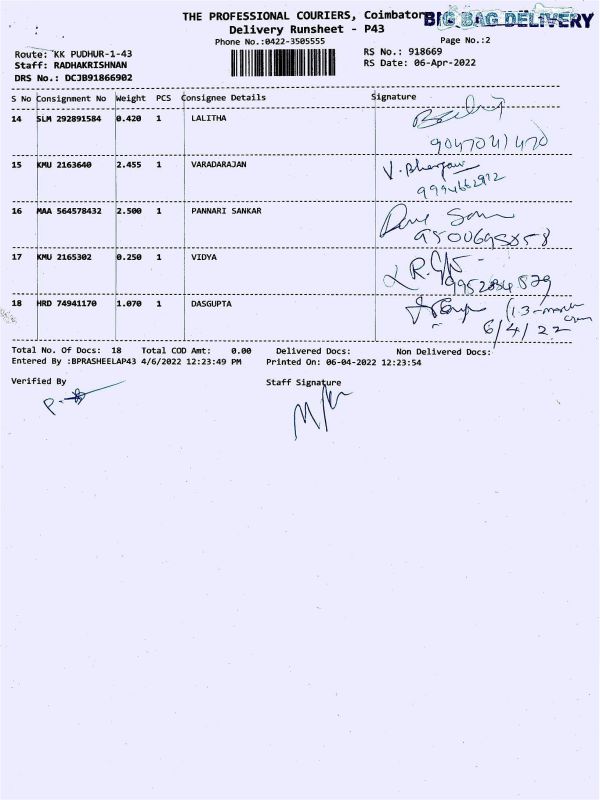 THE PROFESSIONAL COURIERS, Coimbator
BIG BAG DELIVERY
Delivery Runsheet - P43
Phone No.:0422-3505555
Page No.:2
Route: KK PUDHUR-1-43
RS No.: 918669
Staff: RADHAKRISHNAN
RS Date: 06-Apr-2022
DRS No.: DCJB91866902
S No Consignment No Weight PCS Consignee Details Signature
14 SLM 292891584 0.420 1 LALITHA
9047041470
15 KMU 2163640 2.455 1 VARADARAJAN
9994662912
16 MAA 564578432 2.500 1 PANNARI SANKAR
9500695858
17 KMU 2165302 0.250 1 VIDYA
18 HRD 74941170 1.070 1 DASGUPTA
6/4/22
Total No. Of Docs: 18 Total COD Amt: 0.00 Delivered Docs: Non Delivered Docs:
Entered By :BPRASHEELAP43 4/6/2022 12:23:49 PM Printed On: 06-04-2022 12:23:54
Verified By Staff Signature